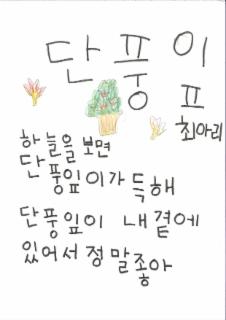 단풍이
ㅍ
최아리
하늘을 보면
단풍잎이가득해
단풍잎이 내곁에
있어서정말좋아